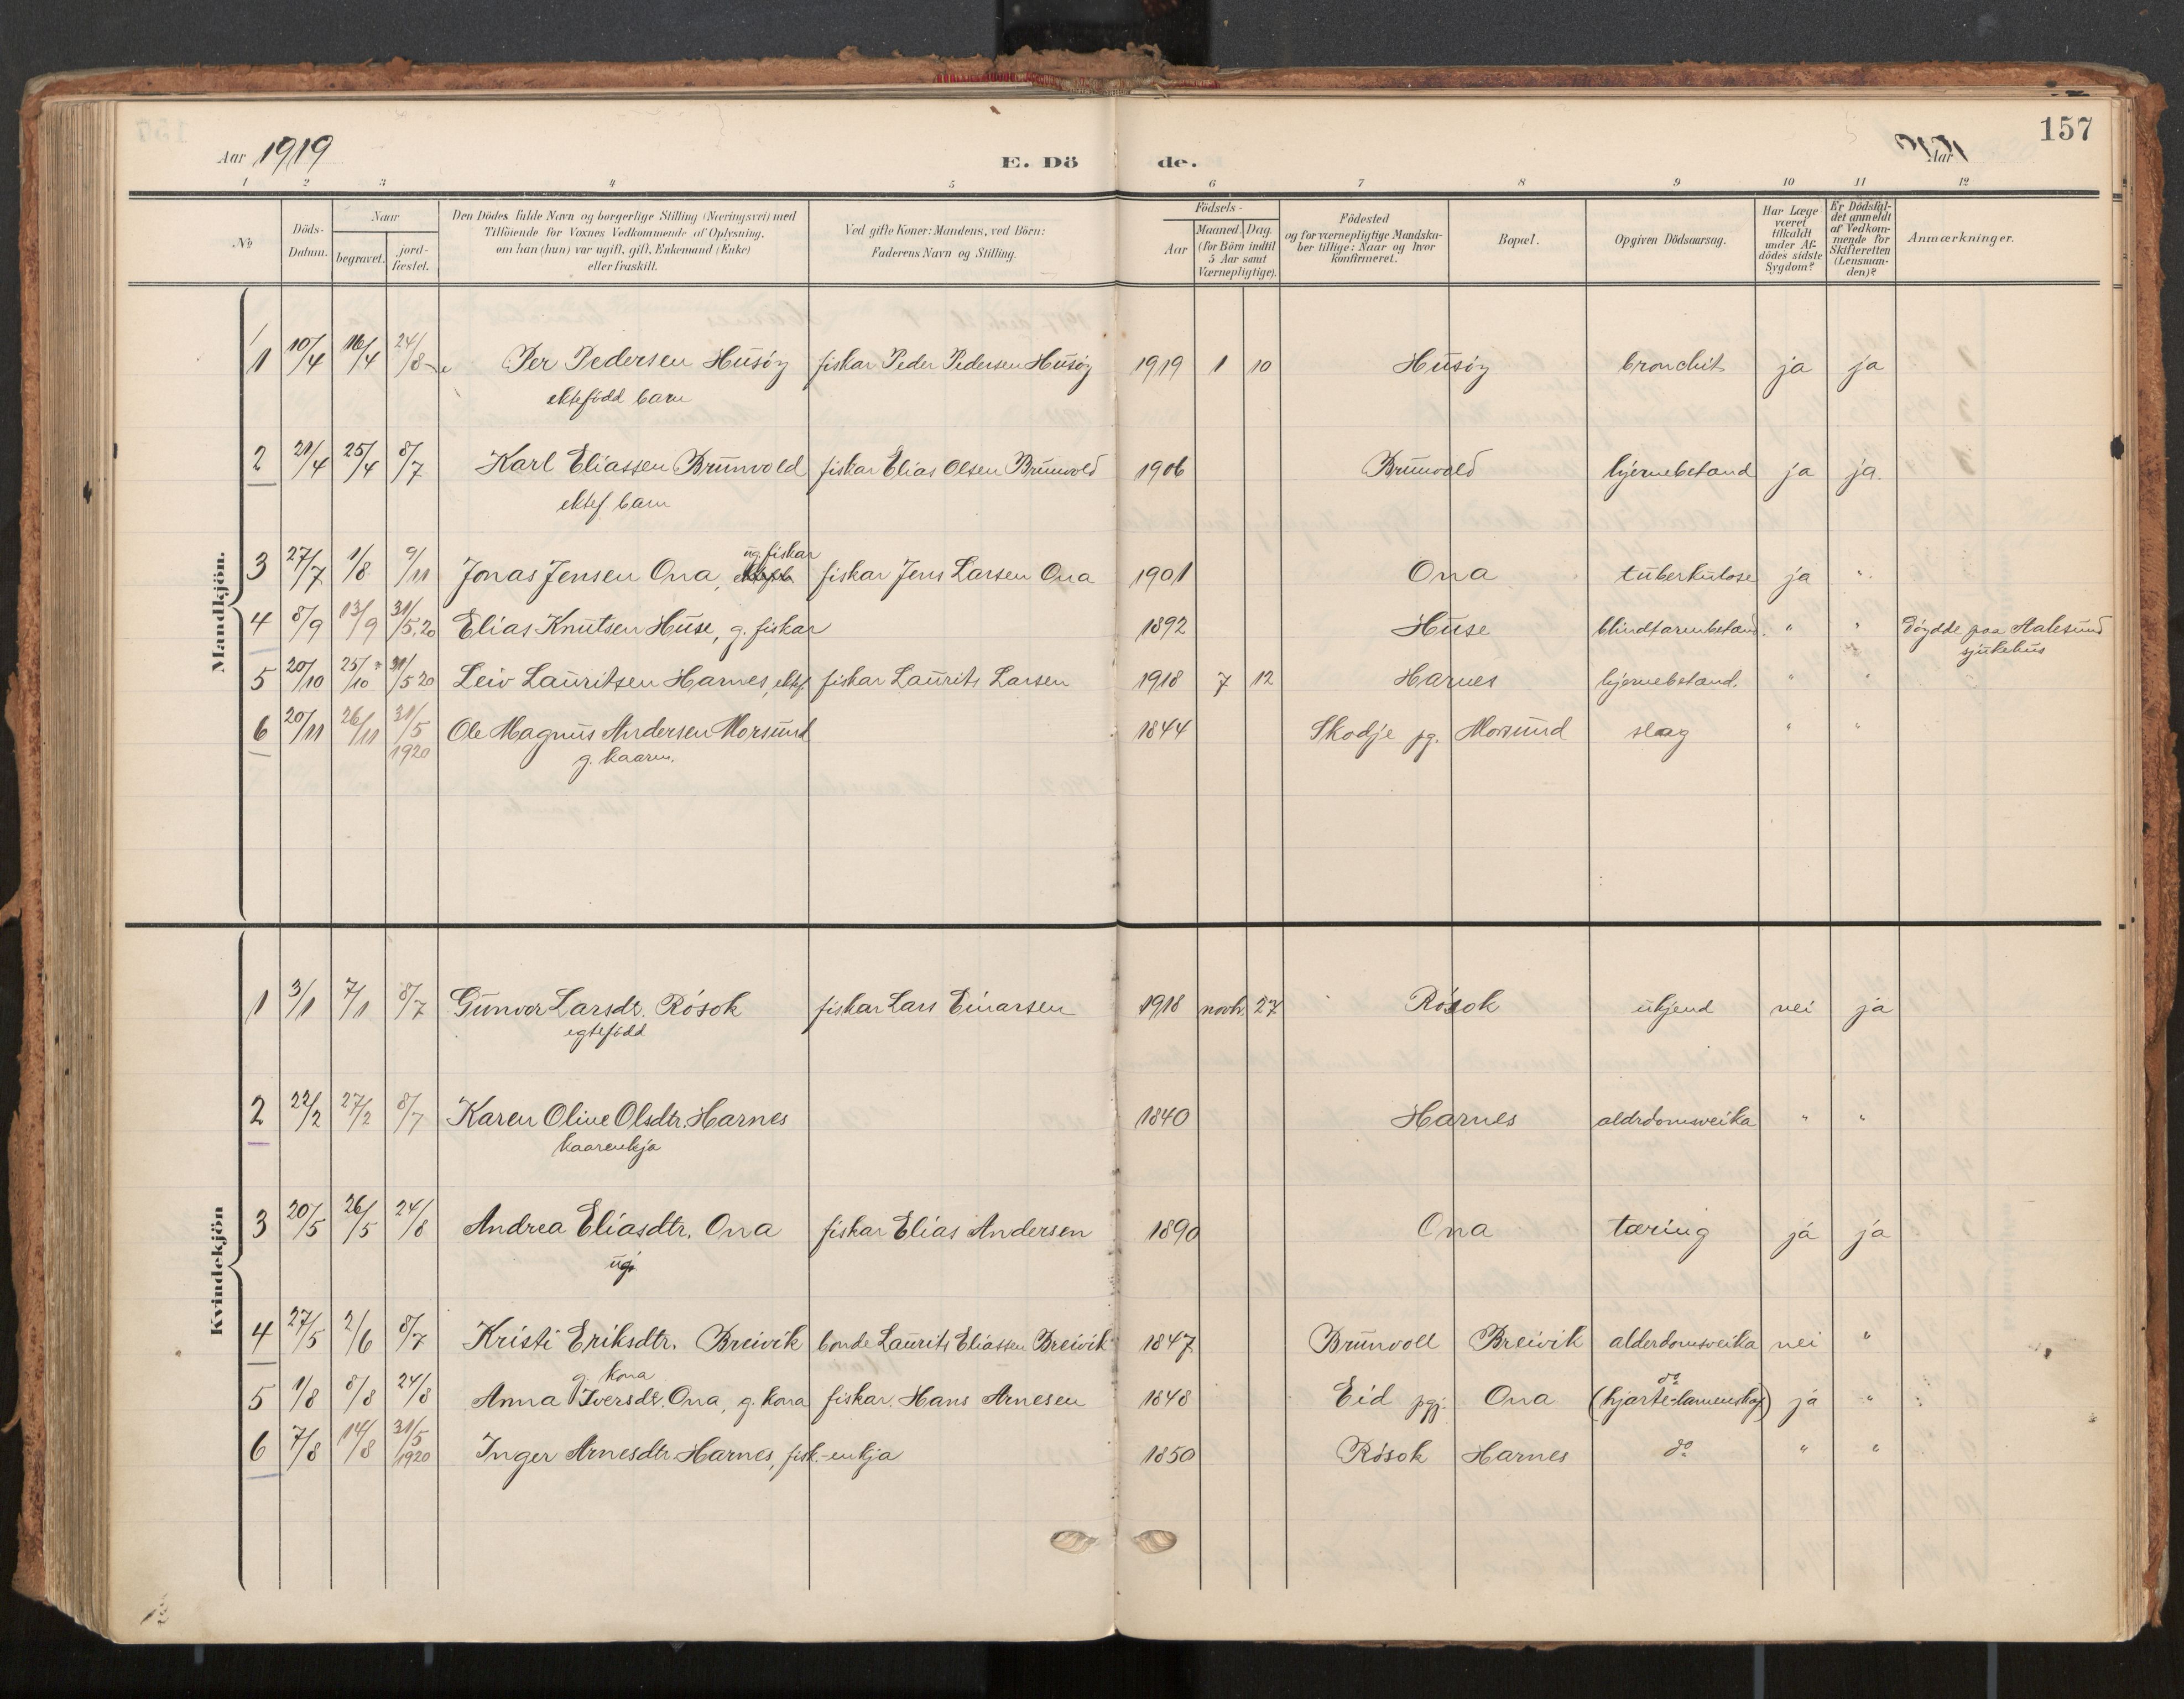 157
Aar 1919
E. Dö de.
Aar 1919
1 2 3 4 5 6 7 8 9 10 11 12
No
Döds-Datum.
Naar
begravet.
jord-fæstet.
Den Dödes fulde Navn og borgerlige Stilling (Næringsvei) med
Tilföiende for Voxnes Vedkommende af Oplysning,
om han (hun) var ugift, gift, Enkemand (Enke)
eller fraskilt.
Ved gifte Koner: Mandens, ved Börn:
Faderens Navn og Stilling.
Födsels-
Aar
Maaned. Dag.
(for Börn indtil
5 Aar samt
Værnepligtige).
Födested
og for værnepligtige Mandska-
ber tillige: Naar og hvor
konfirmeret.
Bopæl.
Opgiven Dödsaarsag.
Har Læge
været
tilkaldt
under Af-
dödes sidste
Sygdom?
Er Dödsfal-
det anmeldt
af Vedkom-
mende for
Skifteretten
(Lensman-
den)?
Anmærkninger.
Mandkjön.
1 10/4 16/4 24/8 Per Pedersen Husöy fiskar Peder Pedersen Husöy 1919 1 10 Husöy bronchit ja ja
ektefödd barn
2 21/4 25/4 8/7 Karl Eliassen Brunvold fiskar Elias Olsen Brunvold 1906 Brunvold hjernebetand ja ja.
ektef. barn
ug. fiskar
3 27/7 1/8 9/11 Jonas Jensen Ona, fiskar Jens Larsen Ona 1901 Ona tuberkulose ja "
4 8/9 13/9 31/5.20 Elias Knutsen Huse, g. fiskar 1892 Huse blindtarmbetand. " " döydde paa Aalesund
sjukehus
5 20/10 25/10 31/5 20 Leiv Lauritsen Harnes, ektef. fiskar Laurits Larsen 1918 7 12 Harnes hjernebetand. " "
6 20/11 26/11 31/5 1920 Ole Magnus Andersen Morsund 1844 Skodje pg. Morsund slag " "
g. kaarm.
Kvindekjön
1 3/1 7/1 8/7 Gunvor Larsdt. Rösok fiskar Lars Einarsen 1918 novbr. 27 Rösok ukjend nei ja
egtefödd
2 22/2 27/2 8/7 Karen Oline Olsdtr. Harnes 1840 Harnes aldrdomsveika " "
kaarenkja
3 20/5 26/5 24/8 Andrea Eliasdtr. Ona fiskar Elias Andersen 1890 Ona tæring ja ja
ug.
4 27/5 2/6 8/7 Kristi Eriksdtr. Breivik bonde Laurits Eliassen Breivik 1847 Brunvoll Breivik alderdomsveika nei "
g. kona
5 1/8 8/8 24/8 Anna Iversdt. Ona, g. kona fiskar Hans Arnesen 1848 Eid pgj. Ona do (hjarte-lamenskap) ja "
6 7/8 14/8 31/5 1920 Inger Arnesdtr. Harnes, fisk.-enkja 1850 Rösok Harnes do " "